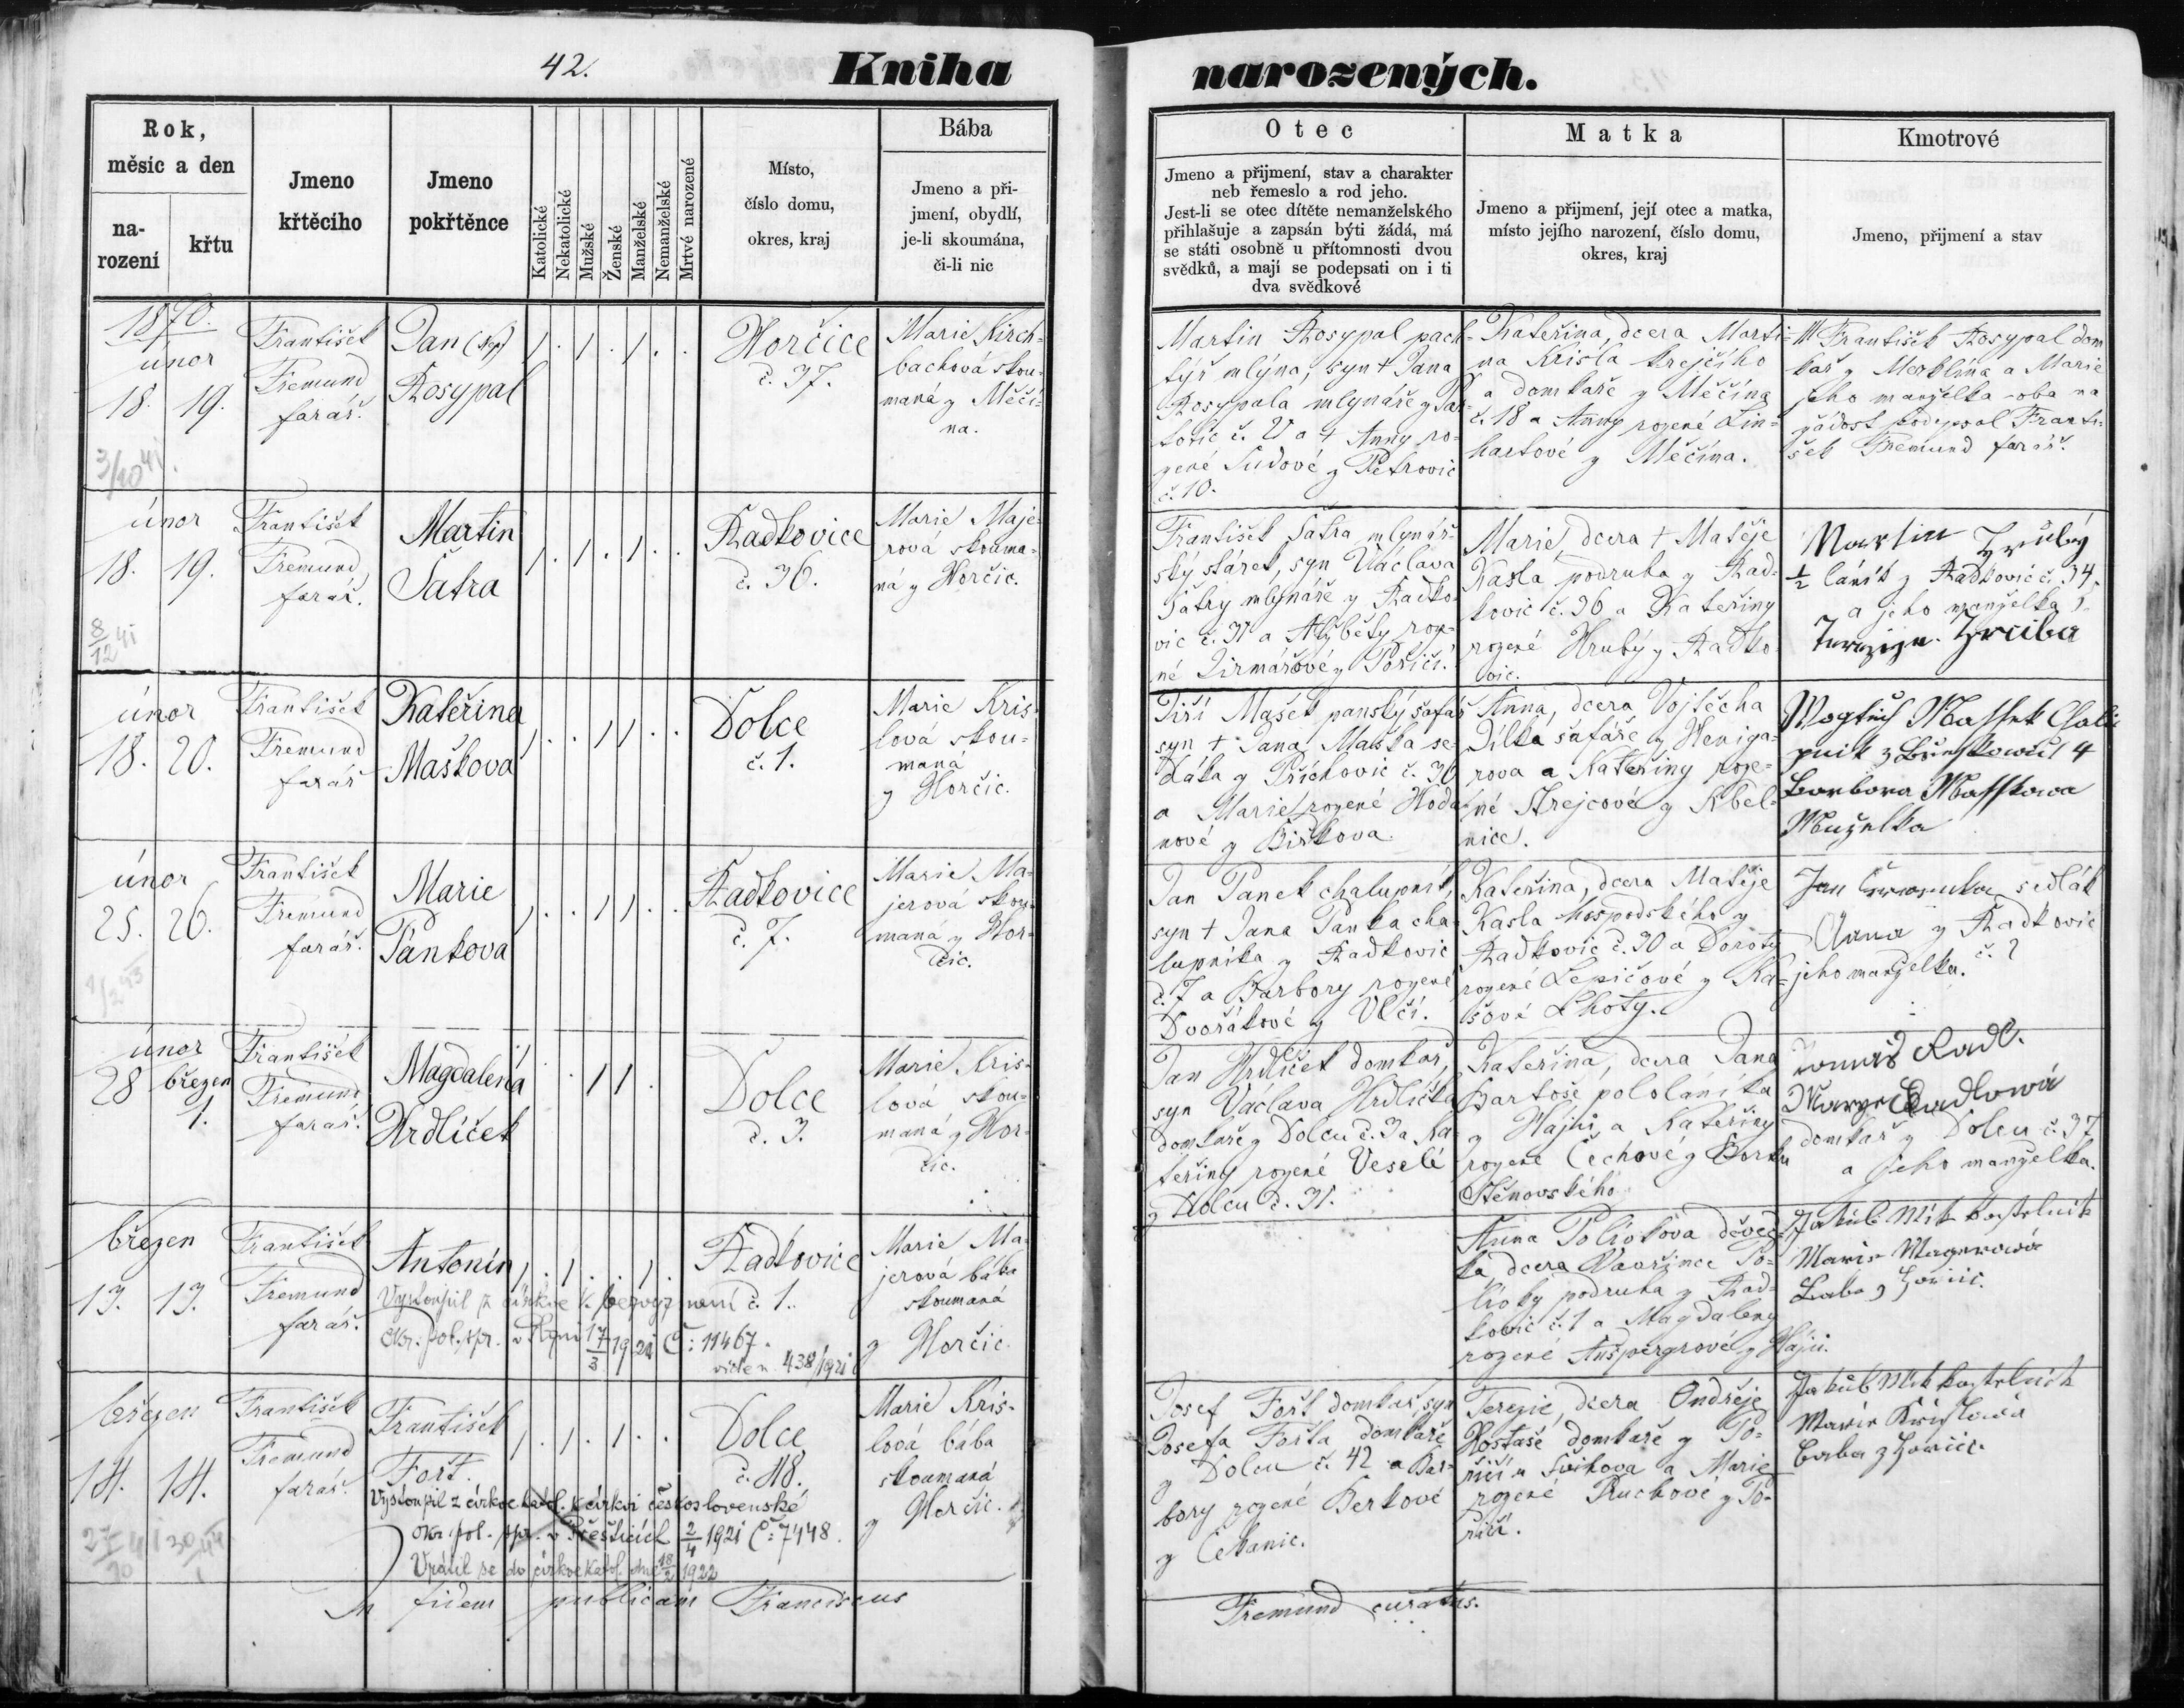 42.
Kniha narozených.
Rok,
měsíc a den
na-
rození
křtu
Jmeno
křtěcího
Jmeno
pokřtěnce
Katolické
Nekatolické
Mužské
Ženské
Manželské
Nemanželské
Mrtvé narozené
Místo,
číslo domu,
okres, kraj
Bába
Jmeno a při-
jmení, obydlí,
je-li skoumána,
či-li nic
Otec
Jmeno a přijmení, stav a charakter
neb řemeslo a rod jeho.
Jest-li se otec dítěte nemanželského
přihlašuje a zapsán býti žádá, má
se státi osobně u přítomnosti dvou
svědků, a mají se podepsati on i ti
dva svědkové
Matka
Jmeno a přijmení, její otec a matka,
místo jejího narození, číslo domu,
okres, kraj
Kmotrové
Jmeno, přijmení a stav
1870.
únor
18. 19.
František
Tremund
farář.
Jan
Rosypal
Horčice
č. 37.
Marie Kirch-
bachová skou-
maná z Měčí-
na.
Martin Rosypal pach-
týř mlýna, syn † Jana
Rosypala mlynáře z
č. a † Anny ro-
zené Sudové z Petrovic
č. 10.
Kateřina, dcera Marti-
na Krisla krejčího
a domkaře z Měčína
č. 18 a Anny rozené Lin-
hartové z Měčína.
František Rosypal dom
kař z Merklína a Marie
jeho manželka - oba na
žádost podepsal Franti-
šek Tremund farář.
únor
18. 19.
František
Tremund
farář.
Martin
Šatra
Radkovice
č. 36.
Marie Maje-
rová skouma-
ná z Horčic.
František Šatra mlynář-
ský stárek, syn Václava
Šatry mlynáře z Radko-
vic č. 31 a Alžběty roze-
né z Poříčí.
Marie, dcera † Matěje
Kasla podruha z Rad-
kovic č. 36 a Kateřiny
rozené Hrubý z Radko-
vic.
Martin Hrubý
½ láník z Radkovic č. 34.
a jeho manželka
únor
18. 20.
František
Tremund
farář
Kateřina
Mašková
Dolce
č. 1.
Marie Kris-
lová skou-
maná
z Horčic.
Jiří Mašek panský šafář
syn † Jana Maška se-
dláka z Příchovic č. 36
a Marie rozené Hoda-
nové z Biškova.
Anna, dcera Vojtěcha
Dílka šafáře z Heniga-
rova a Kateřiny roze-
né Strejcové z Kbel-
nice.
Barbora Masskowa
únor
25. 26.
František
Tremund
farář.
Marie
Pánková
Radkovice
č. 7.
Marie Ma-
jerová skou-
maná z Hor-
čic.
Jan Panek chalupník,
syn † Jana Panka cha-
lupníka z Radkovic
č. 7 a Barbory rozené
Dvořákové z Vlčí.
Kateřina, dcera Matěje
Kasla hospodského z
Radkovic č. 30 a Doroty
rozené Lepičové z Ka-
šové Lhoty.
Jan Červenka sedlák
Anna z Radkovic
jeho manželka. č. 2
únor
28 březen
1.
František
Tremund
farář.
Magdalena
Hrdliček
Dolce
č. 3.
Marie Kris-
lová skou-
maná z Hor-
čic.
Jan Hrdliček domkář,
syn Václava Hrdlička
domkáře z Dolcu č. 3 a Ka-
teřiny rozené Veselé
z Dolcu č. 31.
Kateřina, dcera Jana
Bartoše pololáníka
z Hájů a Kateřiny
rozené Čechové z Borku
Stěnovského
Tomáš Radl.
Radlowá
domkař z Dolcu č. 37
a jeho manželka.
březen
13. 13.
František
Tremund
farář.
Antonín
Vystoupil z církve k. bez vyznání
okr. pol. spr. v Plzni 17/3 1921 Č: 11467.
438/1921
Radkovice
č. 1.
Marie Ma-
jerová bába
skoumaná
z Horčic.
Anna Polívková děveč-
ka, dcera Vavřince Po-
lívky podruha z Rad-
kovic č. 1 a Magdaleny
rozené Aušpergrové z Hájů.
Jakub Mik kostelník
Marie Magerowá
baba z Horčic.
březen
14. 14.
František
Tremund
farář.
František
Fořt.
Vystoupil z církve katol. k církvi československé
okr. pol. spr. v Přešticích 2/4 1921 Č: 7448.
Vrátil se do církve katol. dne 18/2 1922
Dolce
č. 48.
Marie Kris-
lová bába
skoumaná
z Horčic.
Josef Fořt domkář, syn
Josefa Fořta domkáře
z Dolcu č. 42 a Bar-
bory rozené Berkové
z Cekanic.
Terezie, dcera Ondřeje
Hostaše domkaře z Po-
říčí u Švihova a Marie
rozené Ruchové z Po-
říčí.
Jakub Mik kostelník
Marie Krislowá
baba z Horčic.
In fidem publicam Franciscus
Tremund curatus.